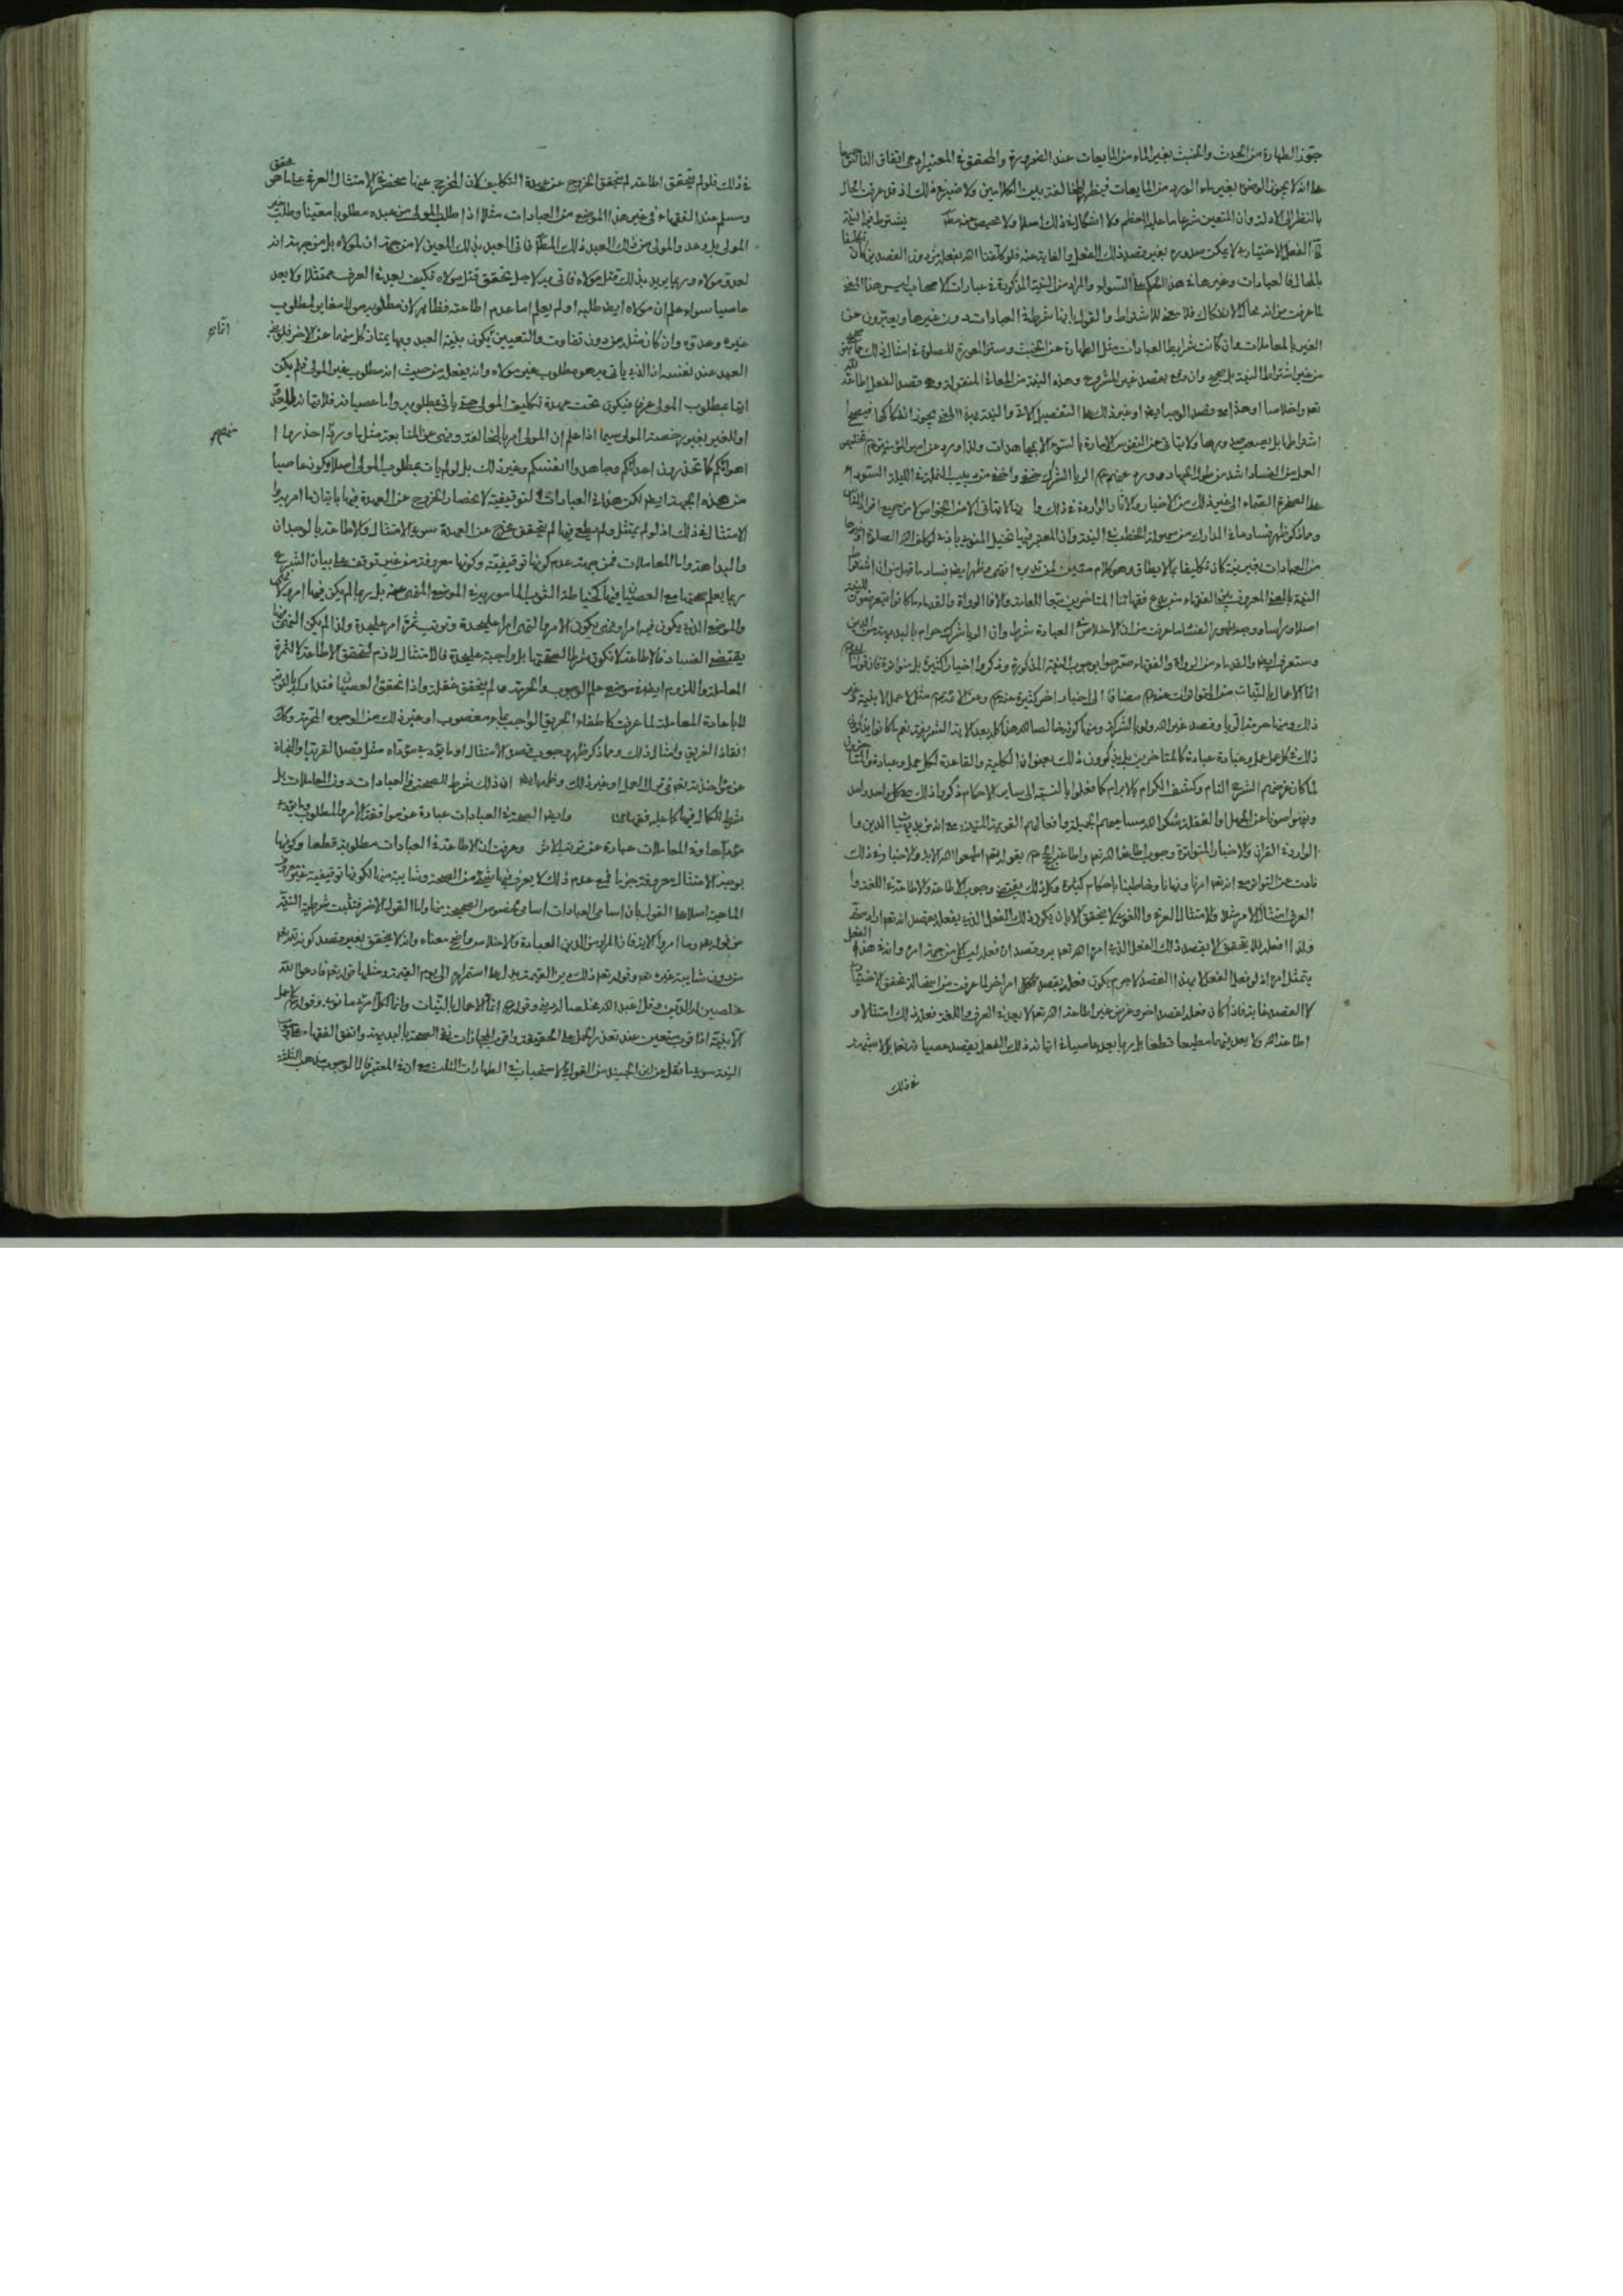 جوّز الطهارة من الحدث والخبث بغير الماء من المايعات عند الضرورة والمحقق في المعتبر ادعى اتفاق الناس
على انه لا يجوز الوضوء بغير ماء الورد من المايعات فيظهر المخالفة بين الكلامين ولا ضير في ذلك اذ قد عرفت الحال
بالنظر الى الادلة وان المتعين شرعا ما عليه المعظم ولا اشكال في ذلك اصلا ولا محيص عنه يشترط فيه النية
لان الفعل الاختياري لا يمكن صدوره بغير قصد ذلك الفعل والغاية منه فلو كلفنا الله بفعله من دون القصدين كان
بالمحال فالعبادات وغيرها في هذا الحكم على السواء والمراد من النية المذكورة في عبارات الاصحاب ليس هذا المعنى
لما عرفت من انه محال الانفكاك فلا معنى للاشتراط والقول بانها شرط في العبادات دون غيرها ويعبرون عن
الغير بالمعاملات وان كانت شرايط العبادات مثل الطهارة عن الخبث وستر العورة للصلوة وامثال ذلك
من غير اشتراط النية بل صحيح وان وقع بقصد غير المشروع وهذه النية من المعاني المنقولة وهي قصد الفعل اطاعة
اشتراطها بل يصعب صدورها ولا يتاتى عن النفوس الامارة بالسوء الا بمجاهدات ولذا ورد عن امير المؤمنين تخليص
العمل من الفساد اشد من طول الجهاد وورد عنهم الرياء الشرك خفي واخفى من دبيب النملة في الليلة السوداء
على الصخرة الصماء الى غير ذلك من الاخبار والاثار الواردة في ذلك
ومما ذكر ظهر فساد ما في المدارك من سهولة الخطب في النية وان المعتبر فيها تخيل المنوي بادنى لو كلف الله الصلوة او غيرها
من العبادات بغير نية كان تكليفا بما لا يطاق وهو كلام متين لمن تدبره انتهى وظهر ايضا فساد ما قيل من ان اشتراط
النية بالمعنى المعروف بين الفقهاء من بدع فقهائنا المتاخرين تبعا للعامة والا فالرواة والقدماء ما كانوا يتعرضون
اصلا وراسا ووجه ظهور الفساد ما عرفت من ان الاخلاص في العبادة شرط وان الرياء شرك حرام بالبديهة من الدين
وستعرف ايضا والقدماء من الرواة والفقهاء صرحوا بوجوب النية المذكورة وذكروا اخبارا كثيرة بل متواترة
انما الاعمال بالنيات من المتواترات عندهم مضافا الى اخبار اخر كثيرة عندهم وعن الائمة مثل لا عمل الا بنية وغير
ذلك ومنها حرمة الريا وقصد غير الله ولو بالشركة ومنها كونه خالصا لله هذا كله بعد الاية الشريفة نعم ما كانوا يذكرون
ذلك في كل عمل عمل وعبادة عبادة كالمتاخرين بل يذكرون ذلك بعنوان الكلية والقاعدة لكل عمل وعبادة والمتاخرون
لما كان غرضهم الشرح التام وكشف الكرام والابرام كما فعلوا بالنسبة الى ساير الاحكام ذكروا ذلك في كل واحد واحد
ونبهوا صونا عن الجهل والغفلة شكر الله مساعيهم الجميلة وافعالهم القويمة المتينة
الواردة في القران والاخبار المتواترة وجوب اطاعة الله تعالى بقوله تعالى اطيعوا الله الاية والاخبار في ذلك
زادت عن التواتر مع انه تعالى امرنا ونهانا وخاطبنا باحكام كثيرة وكل ذلك يقتضي وجوب الاطاعة والاطاعة في اللغة
العرف امتثال الامر مثلا والامتثال العرفي واللغوي لا يتحقق الا بان يكون ذلك الفعل الذي يفعله بقصد انه تعالى اراده
ولذا افعله لا يتحقق الا بقصد ذلك الفعل الذي امر الله تعالى به وقصد ان فعله ليس الا من جهة امره وانه في هذا الفعل
يتمثل امره اذ لو فعل الفعل لا بهذا القصد لا جرم يكون فعله بقصد امر اخر لما عرفت من استحالة تحقق الاختياري
لا القصد غاية فاذا كان فعله لقصد اخر وغرض غير اطاعة الله تعالى لا يعد في العرف واللغة فعله ذلك امتثالا و
اطاعة الله ولا يعد فيهما مطيعا قطعا بل ربما يعد عاصيا في اتيانه ذلك الفعل بقصد عصيانه تعالى بلا شبهة
في ذلك
في ذلك فلو لم يتحقق اطاعته لم يتحقق الخروج عن عهدة التكليف لان المخرج عنها منحصر في الامتثال العرفي على ما هو محقق
ومسلم عند الفقهاء في غير هذا الموضع من العبادات مثلا اذا طلب المولى من عبده مطلوبا معينا وطلب غير
المولى بل وعدو المولى من ذلك العبد ذلك المطلوب فاتى العبد بذلك المعين لا من جهة انه لمولاه بل من جهة انه
لعدو مولاه وربما يريد بذلك قتل مولاه فاتى به لاجل تحقق قتل مولاه فكيف يعد في العرف ممتثلا ولا يعد
عاصيا سواء علم ان مولاه ايضا طلبه او لم يعلم اما عدم اطاعته فظاهر لان مطلوب مولاه مغاير لمطلوب
غيره وعدوه وان كان مثله من دون تفاوت والتعيين يكون بنية العبد وبها يمتاز كل منهما عن الاخر
العبد عند نفسه ان الذي ياتي به هو مطلوب غير مولاه وانه يفعله من حيث انه مطلوب غير المولى فلم يكن
اتيا بمطلوب المولى عرفا فيكون تحت عهدة تكليف المولى حتى ياتي بمطلوبه واما عصيانه فلاتيانه
او للغير بغير رخصة المولى سيما اذا علم ان المولى امر بالمخالفة ونهى عن المتابعة مثل ما ورد احذروا
اهوائكم كما تحذرون اعدائكم وجاهدوا انفسكم وغير ذلك بل لو لم يات بمطلوب المولى اصلا لا يكون عاصيا
من هذه الجهة ايضا لكن هذا في العبادات التوقيفية لانحصار الخروج عن العهدة فيها باتيان ما امر به
الامتثال في ذلك اذ لو لم يمتثل ولم يطع فيها لم يتحقق مخرج عن العهدة سوى الامتثال والاطاعة بالوجدان
والبداهة واما المعاملات فمن جهة عدم كونها توقيفية وكونها معروفة من غير توقف على بيان الشرع
ربما يعلم صحتها مع العصيان فيها كخياطة الثوب المامور به في الموضع المنهي عنه بل ربما لم يكن فيها امر
والموضع الذي يكون فيه امر ونهي يكون الامر بها والنهي امرا عليحدة وترتب ثمرة امر عليحدة واذا لم يكن النهي
يقتضي الفساد فالاطاعة لا تكون شرطا لصحتها بل واجبة عليحدة فالامتثال لازم لتحقق الاطاعة لا لثمرة
المعاملة واللزوم ايضا في موضع علم الوجوب والحرمة ولم يتحقق غفلة واذا تحقق العصيان فيها فتداركه
لا باعادة المعاملة لما عرفت كاطفاء الحريق الواجب بماء مغصوب او غير ذلك من الوجوه المحرمة وكذا
انقاذ الغريق وامثال ذلك ومما ذكر ظهر وجوب قصد الامتثال او ما يؤدي مؤداه مثل قصد القربة او النجاة
عن مؤاخذته تعالى في ترك العمل او غير ذلك وظهر ايضا ان ذلك شرط للصحة في العبادات دون المعاملات بل
شرط للكمال فيها كما عليه فقهائنا وايضا الصحة في العبادات عبارة عن موافقة الامر والمطلوب
مؤداها وفي المعاملات عبارة عن ترتب الاثر وعرفت ان الاطاعة في العبادات مطلوبة قطعا وكونها
بوجه الامتثال معروفة جزما فمع عدم ذلك لا يعرف فيها شيء من الصحة وشائبة منها لكونها توقيفية غير معروفة
الماهية اصلا على القول بان اسامي العبادات اسامي لخصوص الصحيحة منها واما القول الاخر فتثبت شرطية النية
من قوله تعالى وما امروا الاية فان المراد من الدين العبادة والاخلاص واضح معناه وانه لا يتحقق بغير قصد كونه لله تعالى
من دون شائبة غيره تعالى وقوله تعالى ذلك دين القيمة يدل على استمراره الى يوم القيمة ومثلها قوله تعالى فادعوا الله
مخلصين له الدين وقل اعبد الله مخلصا له ديني وقوله انما الاعمال بالنيات وانما لكل امرئ ما نوى وقوله لا عمل
الا بنية اذ اقرب متعين عند تعذر الحمل على الحقيقة واقرب المجازات نفي الصحة بالبديهة واتفق الفقهاء
النية سوى ما نقل عن ابن الجنيد من القول بالاستحباب في الطهارات الثلث مع ان في المعتبر قال الوجوب مذهب الثلثة